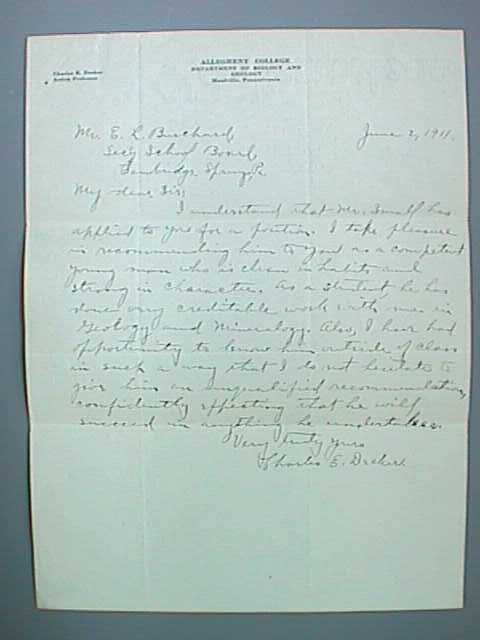 ALLEGHENY COLLEGE
DEPARTMENT OF BIOLOGY AND
GEOLOGY
Meadville, Pennsylvania
Charles E. Decker
Acting Professor
Mr. E. L. Burchard, June 2, 1911.
Sec'y School Board
Cambridge Springs, Pa.
My dear Sir,
I understand that Mr. Small has
applied to you for a position. I take pleasure
in recommending him to you as a competent
young man who is clean in habits and
strong in character. As a student, he has
done very creditable work with me in
Geology and Mineralogy. Also, I have had
opportunity to know him outside of class
in such a way that I do not hesitate to
give him an unqualified recommendation,
confidently expecting that he will
succeed in anything he undertakes.
Very truly yours
Charles E. Decker